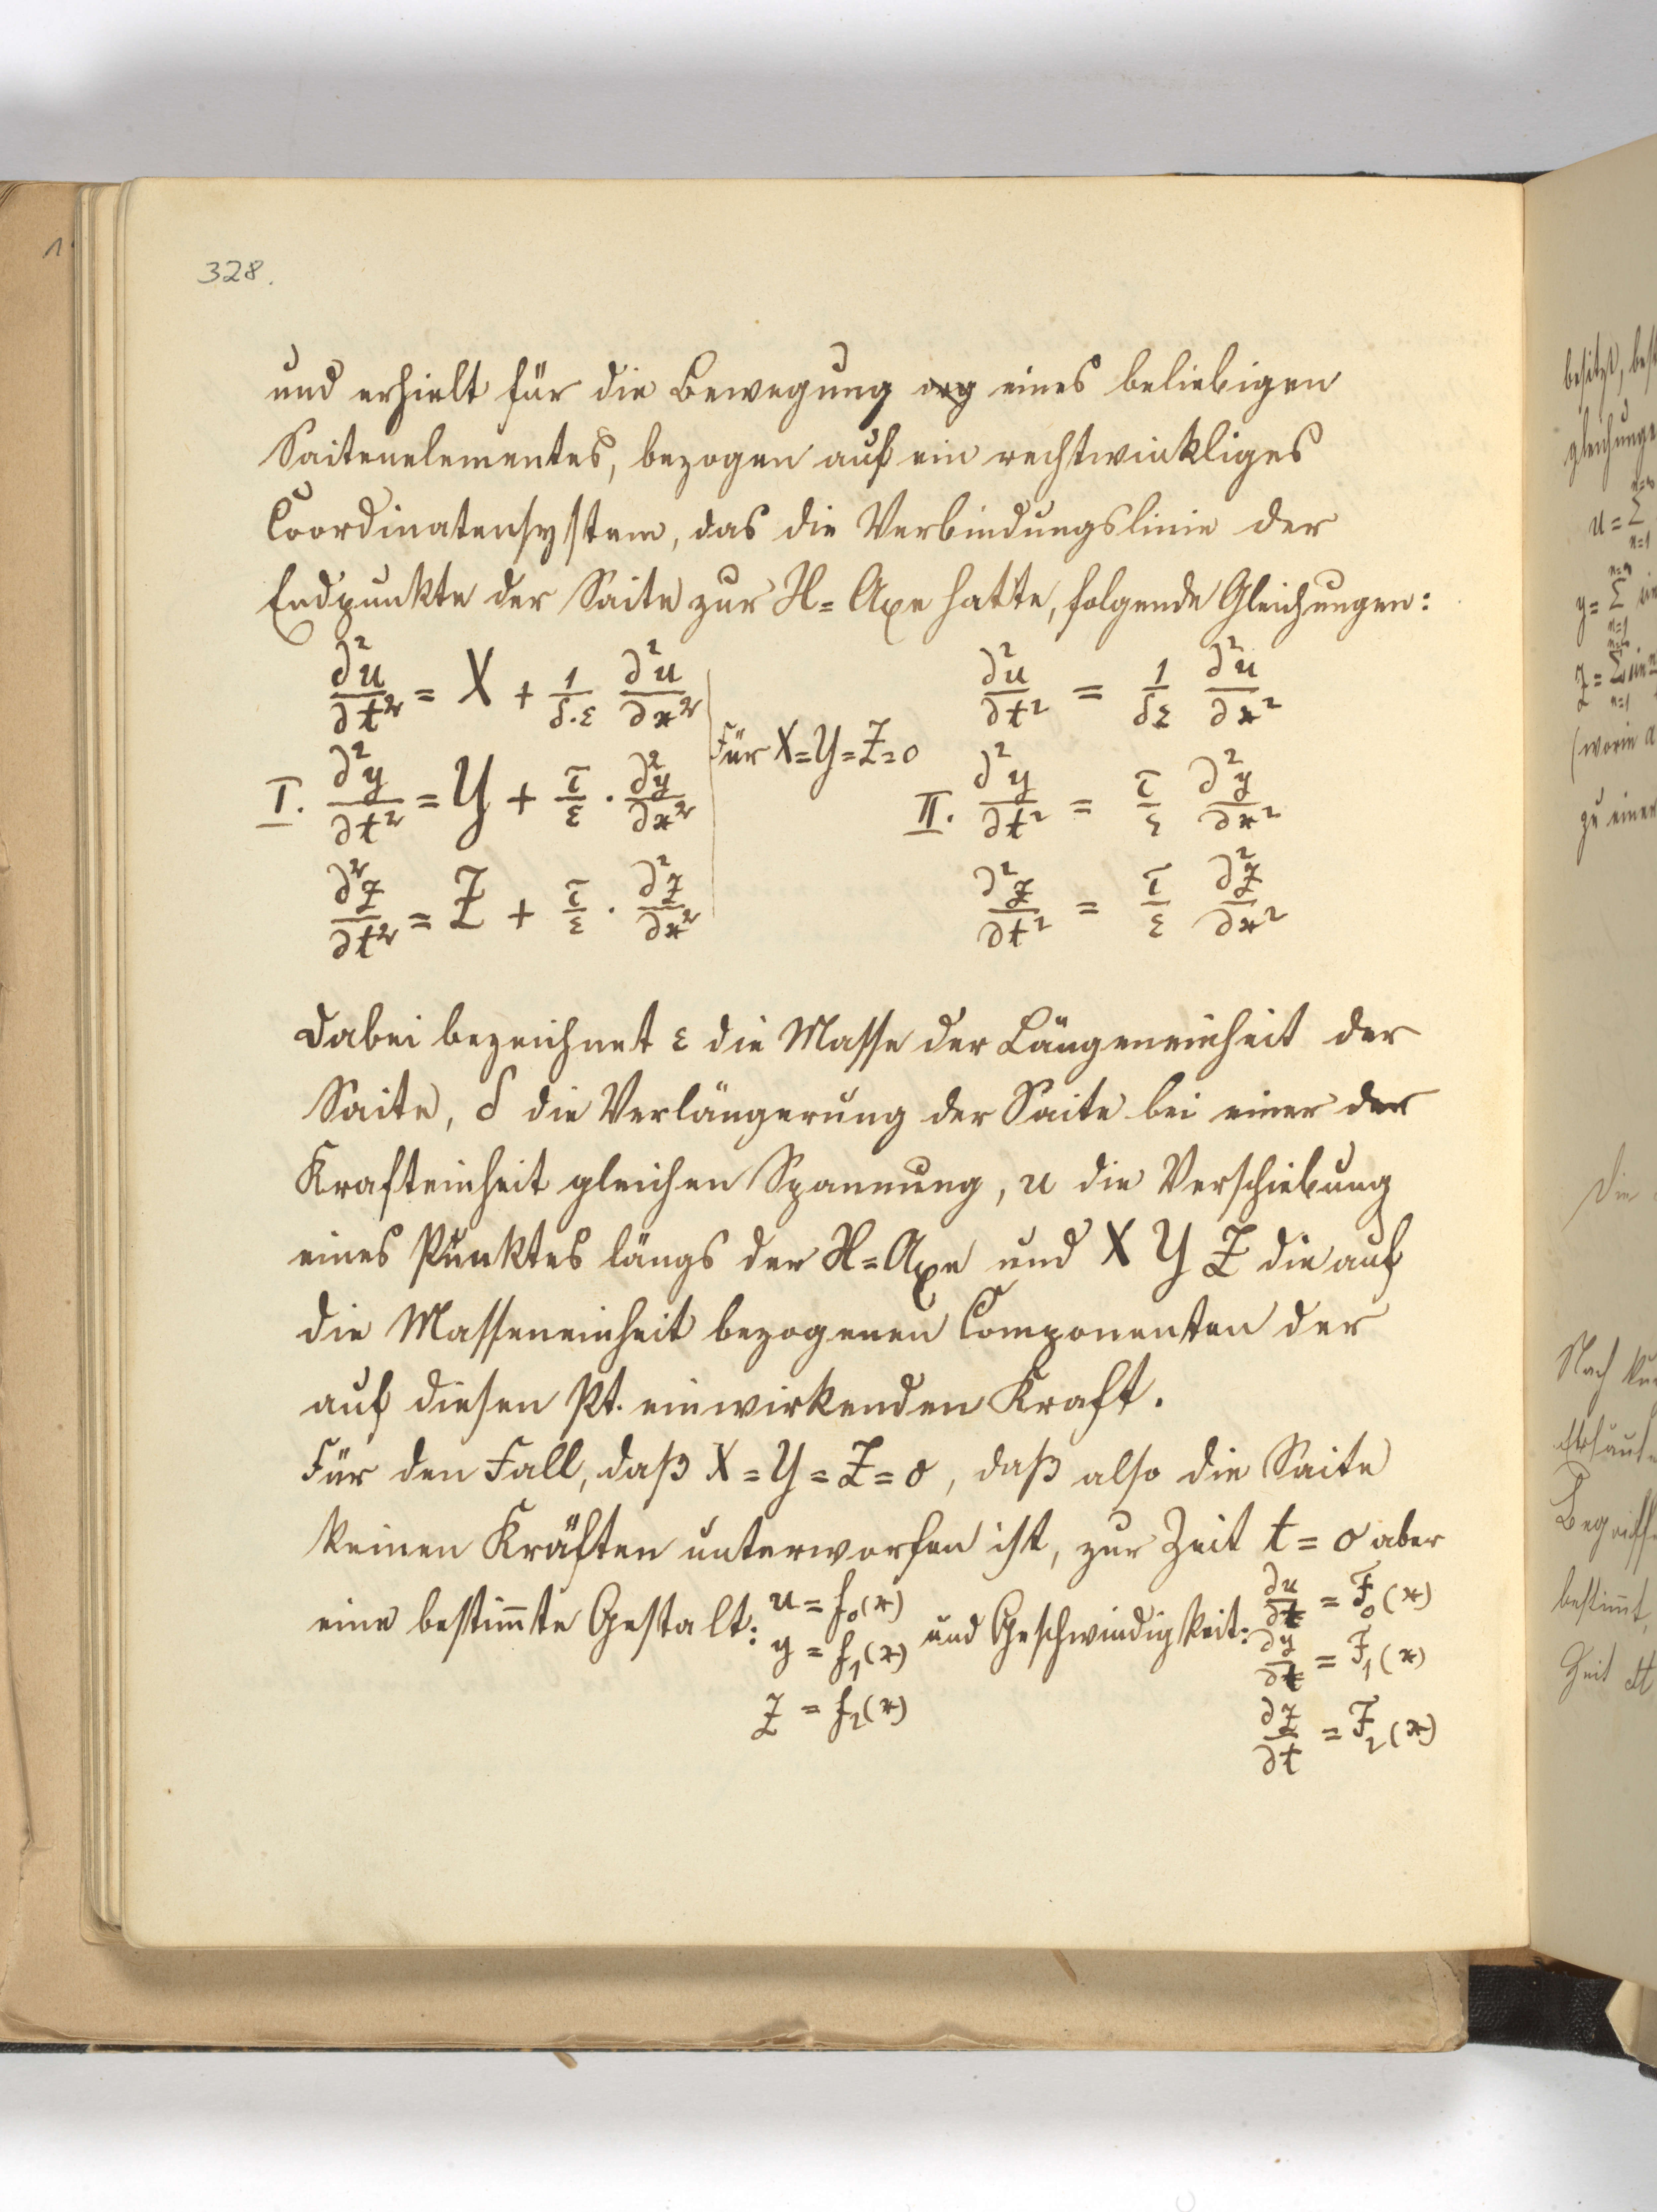 328.
und erhielt für die Bewegung eines beliebigen
Saitenelementes, bezogen auf ein rechtwinkliges
Coordinatensystem, das die Verbindungslinie der
Endpunkte der Saite zur X=Axe hatte, folgende Gleichungen:
∂²u/∂t² = X + 1/δ·ε ∂²u/∂x² ∂²u/∂t² = 1/δε ∂²u/∂x²
für X=Y=Z=0
I. ∂²y/∂t² = Y + τ/ε · ∂²y/∂x² II. ∂²y/∂t² = τ/ε ∂²y/∂x²
∂²z/∂t² = Z + τ/ε · ∂²z/∂x² ∂²z/∂t² = τ/ε ∂²z/∂x²
Dabei bezeichnet ε die Masse der Längeneinheit der
Saite, δ die Verlängerung der Saite bei einer der
Krafteinheit gleichen Spannung, u die Verschiebung
eines Punktes längs der X=Axe und X Y Z die auf
die Masseneinheit bezogenen Componenten der
auf diesen Pt. einwirkenden Kraft.
Für den Fall, daß X=Y=Z=0, daß also die Saite
keinen Kräften unterworfen ist, zur Zeit t=0 aber
eine bestim̄te Gestalt: u = f₀(x) und Geschwindigkeit: ∂u/∂t = F₀(x)
y = f₁(x) ∂y/∂t = F₁(x)
z = f₂(x) ∂z/∂t = F₂(x)
besitzt,
gleichunge
u = Σ n=1
y = Σ n=1
z = Σ sin n=1
(worin
zu einer
Die
Nach
Begriffe
bestim̄t,
Zeit dt